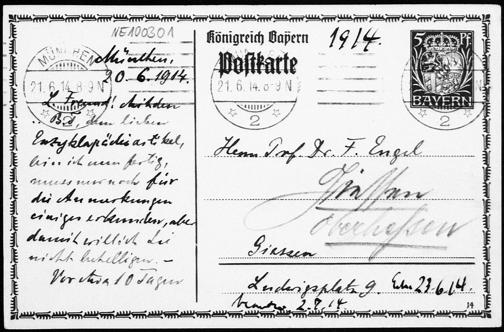 NE100301
München,
20.6.1914.
L. Freund! Mit dem
Bd, dem lieben
Enzyklopädieartikel,
bin ich nun fertig,
muss nur noch für
die Anmerkungen
einiges erkunden, aber
damit will ich Sie
nicht behelligen. –
Vor etwa 10 Tagen
Königreich Bayern
Postkarte
1914.
5 Pf
BAYERN
MÜNCHEN
21.6.14.8-9N
2
21.6.14.8-9N
2
Herrn Prof. Dr. F. Engel
Giessen
Oberhessen
Giessen
Ludwigsplatz 9. Erh. 23.6.14.
Beantw. 2.7.14
14